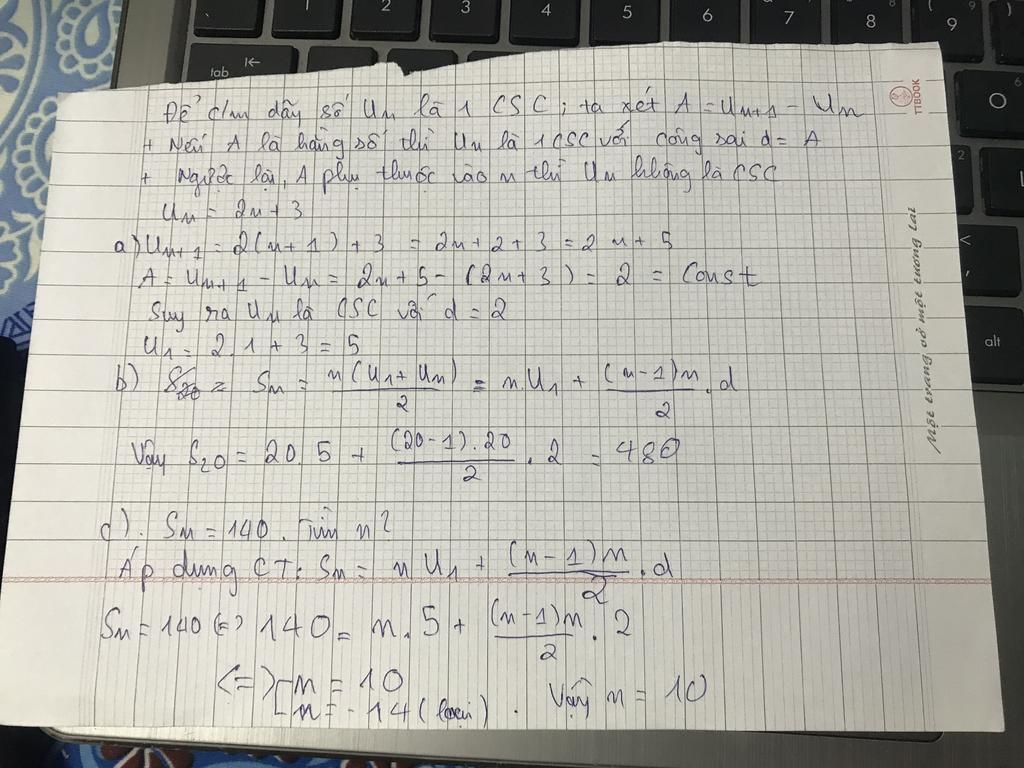 Để c/m dãy số Un là 1 CSC; ta xét A = Un+1 - Un
+ Nếu A là hằng số thì Un là 1 CSC với công sai d = A
+ Ngược lại, A phụ thuộc vào n thì Un không là CSC
Un = 2n + 3
a) Un+1 = 2(n+1) + 3 = 2n + 2 + 3 = 2n + 5
A = Un+1 - Un = 2n + 5 - (2n + 3) = 2 = Const
Suy ra Un là CSC với d = 2
U1 = 2.1 + 3 = 5
b) S20 = Sn = n(U1 + Un)/2 = n.U1 + (n-1)n/2 . d
Vậy S20 = 20.5 + (20-1).20/2 . 2 = 480
c). Sn = 140. Tìm n?
Áp dụng CT: Sn = n U1 + (n-1)n/2 . d
Sn = 140 <=> 140 = n.5 + (n-1)n/2 . 2
<=> [ n = 10
n = -14 (loại). Vậy n = 10
TIBOOK
Một trang vở một tương lai
tab
1
2
3
4
5
6
7
8
9
(
O
6
2
<
,
alt